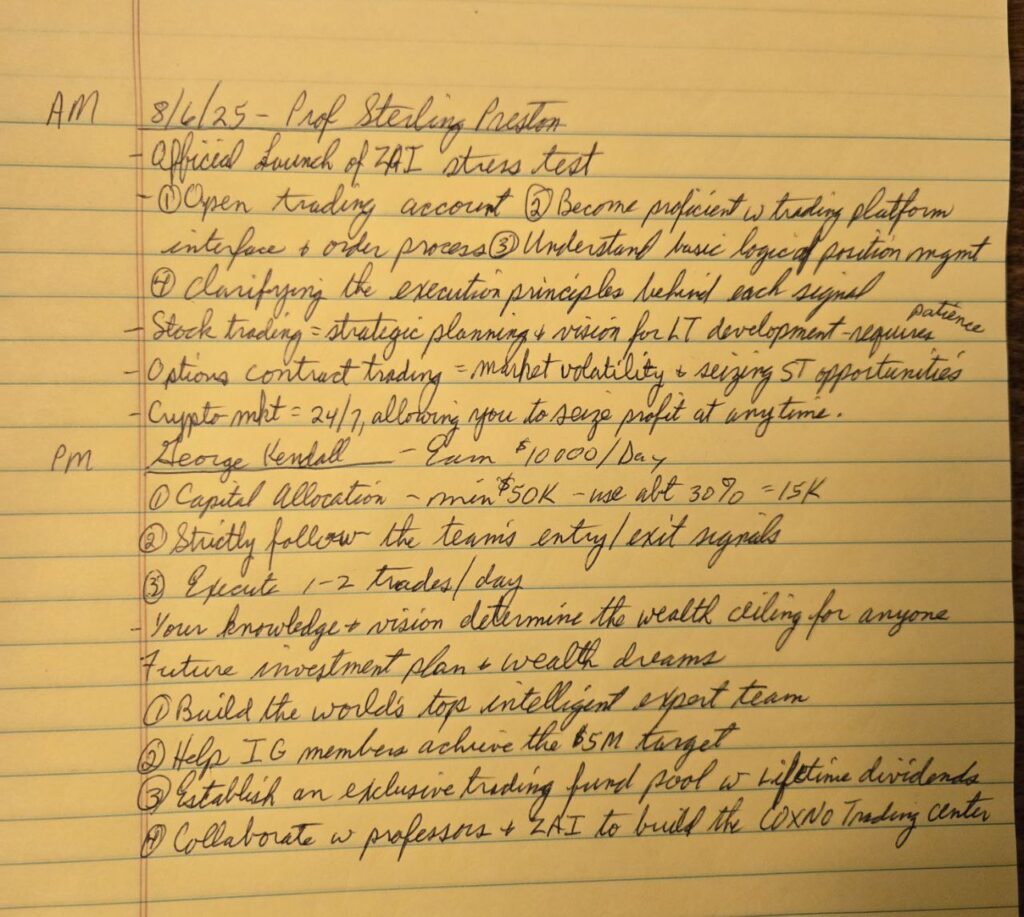 AM 8/6/25 - Prof Sterling Preston
- Official Launch of ZAI stress test
- ① Open trading account ② Become proficient w trading platform
interface + order process ③ Understand basic logic of position mgmt
④ Clarifying the execution principles behind each signal
- Stock trading = strategic planning + vision for LT development - requires patience
- Options contract trading = market volatility + seizing ST opportunities
- Crypto mkt = 24/7, allowing you to seize profit at anytime.
PM George Kendall - Earn $10000/Day
① Capital Allocation - min $50K - use abt 30% = 15K
② Strictly follow the team's entry/exit signals
③ Execute 1-2 trades/day
- Your knowledge + vision determine the wealth ceiling for anyone
Future investment plan + wealth dreams
① Build the world's top intelligent expert team
② Help IG members achieve the $5M target
③ Establish an exclusive trading fund pool w Lifetime dividends
④ Collaborate w professors + ZAI to build the COXNO Trading Center